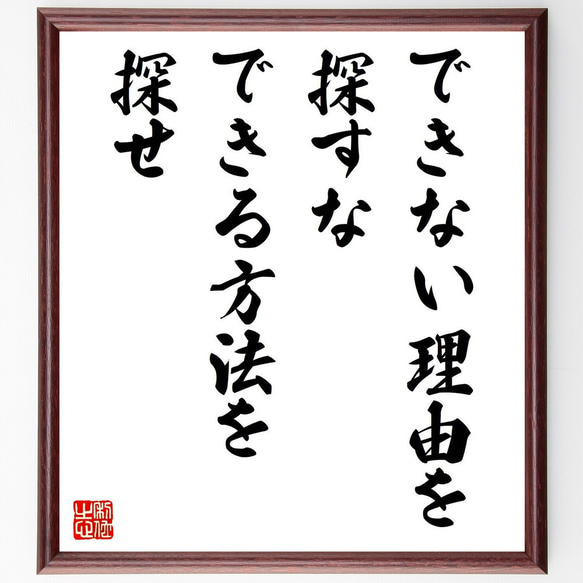 できない理由を
探すな
できる方法を
探せ